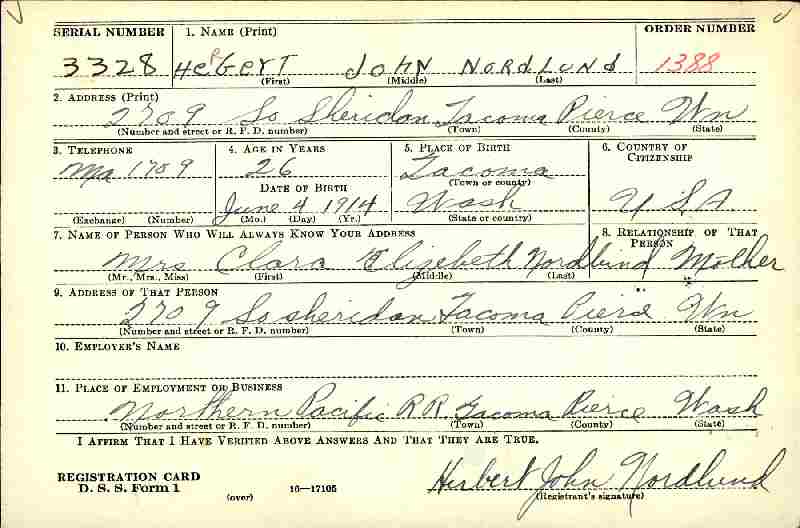 SERIAL NUMBER 1. NAME (Print) ORDER NUMBER
3328 HerbERT JOHN NORDLUND 1388
(First) (Middle) (Last)
2. ADDRESS (Print)
2709 So Sheridan Tacoma Pierce Wn
(Number and street or R. F. D. number) (Town) (County) (State)
3. TELEPHONE 4. AGE IN YEARS 5. PLACE OF BIRTH 6. COUNTRY OF CITIZENSHIP
Ma 1709 26 Tacoma
(Town or county)
DATE OF BIRTH
June 4 1914 Wash U S A
(Exchange) (Number) (Mo.) (Day) (Yr.) (State or country)
7. NAME OF PERSON WHO WILL ALWAYS KNOW YOUR ADDRESS 8. RELATIONSHIP OF THAT PERSON
Mrs Clara Elizebeth Nordlund Mother
(Mr., Mrs., Miss) (First) (Middle) (Last)
9. ADDRESS OF THAT PERSON
2709 So sheridan Tacoma Pierce Wn
(Number and street or R. F. D. number) (Town) (County) (State)
10. EMPLOYER'S NAME
11. PLACE OF EMPLOYMENT OR BUSINESS
Northern Pacific R R. Tacoma Pierce Wash
(Number and street or R. F. D. number) (Town) (County) (State)
I AFFIRM THAT I HAVE VERIFIED ABOVE ANSWERS AND THAT THEY ARE TRUE.
REGISTRATION CARD
D. S. S. Form 1 (over) 16—17105 Herbert John Nordlund
(Registrant's signature)